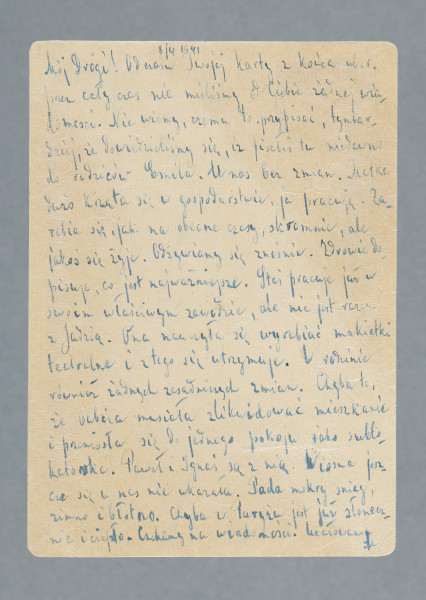 8/4 1941
Mój Drogi! Od czasu Twojej karty z końca ub. r.
przez cały czas nie mieliśmy od Ciebie żadnej wia-
domości. Nie wiemy, czemu to przypisać, tymbar-
dziej, że dowiedzieliśmy się, iż pisałeś tu niedawno
do rodziców Emila. U nas bez zmian. Matka
dużo krząta się w gospodarstwie, ja pracuję. Za-
rabia się, jak na obecne czasy, skromnie, ale
jakoś się żyje. Odżywiamy się znośnie. Zdrowie do-
pisuje, co jest najważniejsze. Stef pracuje już w
swoim właściwym zawodzie, ale nie jest razem
z Jadzią. Ona nauczyła się wyrabiać makietki
teatralne i z tego się utrzymuje. W rodzinie
również żadnych zasadniczych zmian. Chyba to,
że babcia musiała zlikwidować mieszkanie
i przeniosła się do jednego pokoju jako sublo-
katorka. Paweł i Ignaś są z nią. Wiosna jesz-
cze się u nas nie ukazała. Pada mokry śnieg,
zimno i błotno. Chyba w Paryżu jest już słonecz-
nie i ciepło. Czekamy na wiadomości. Całujemy